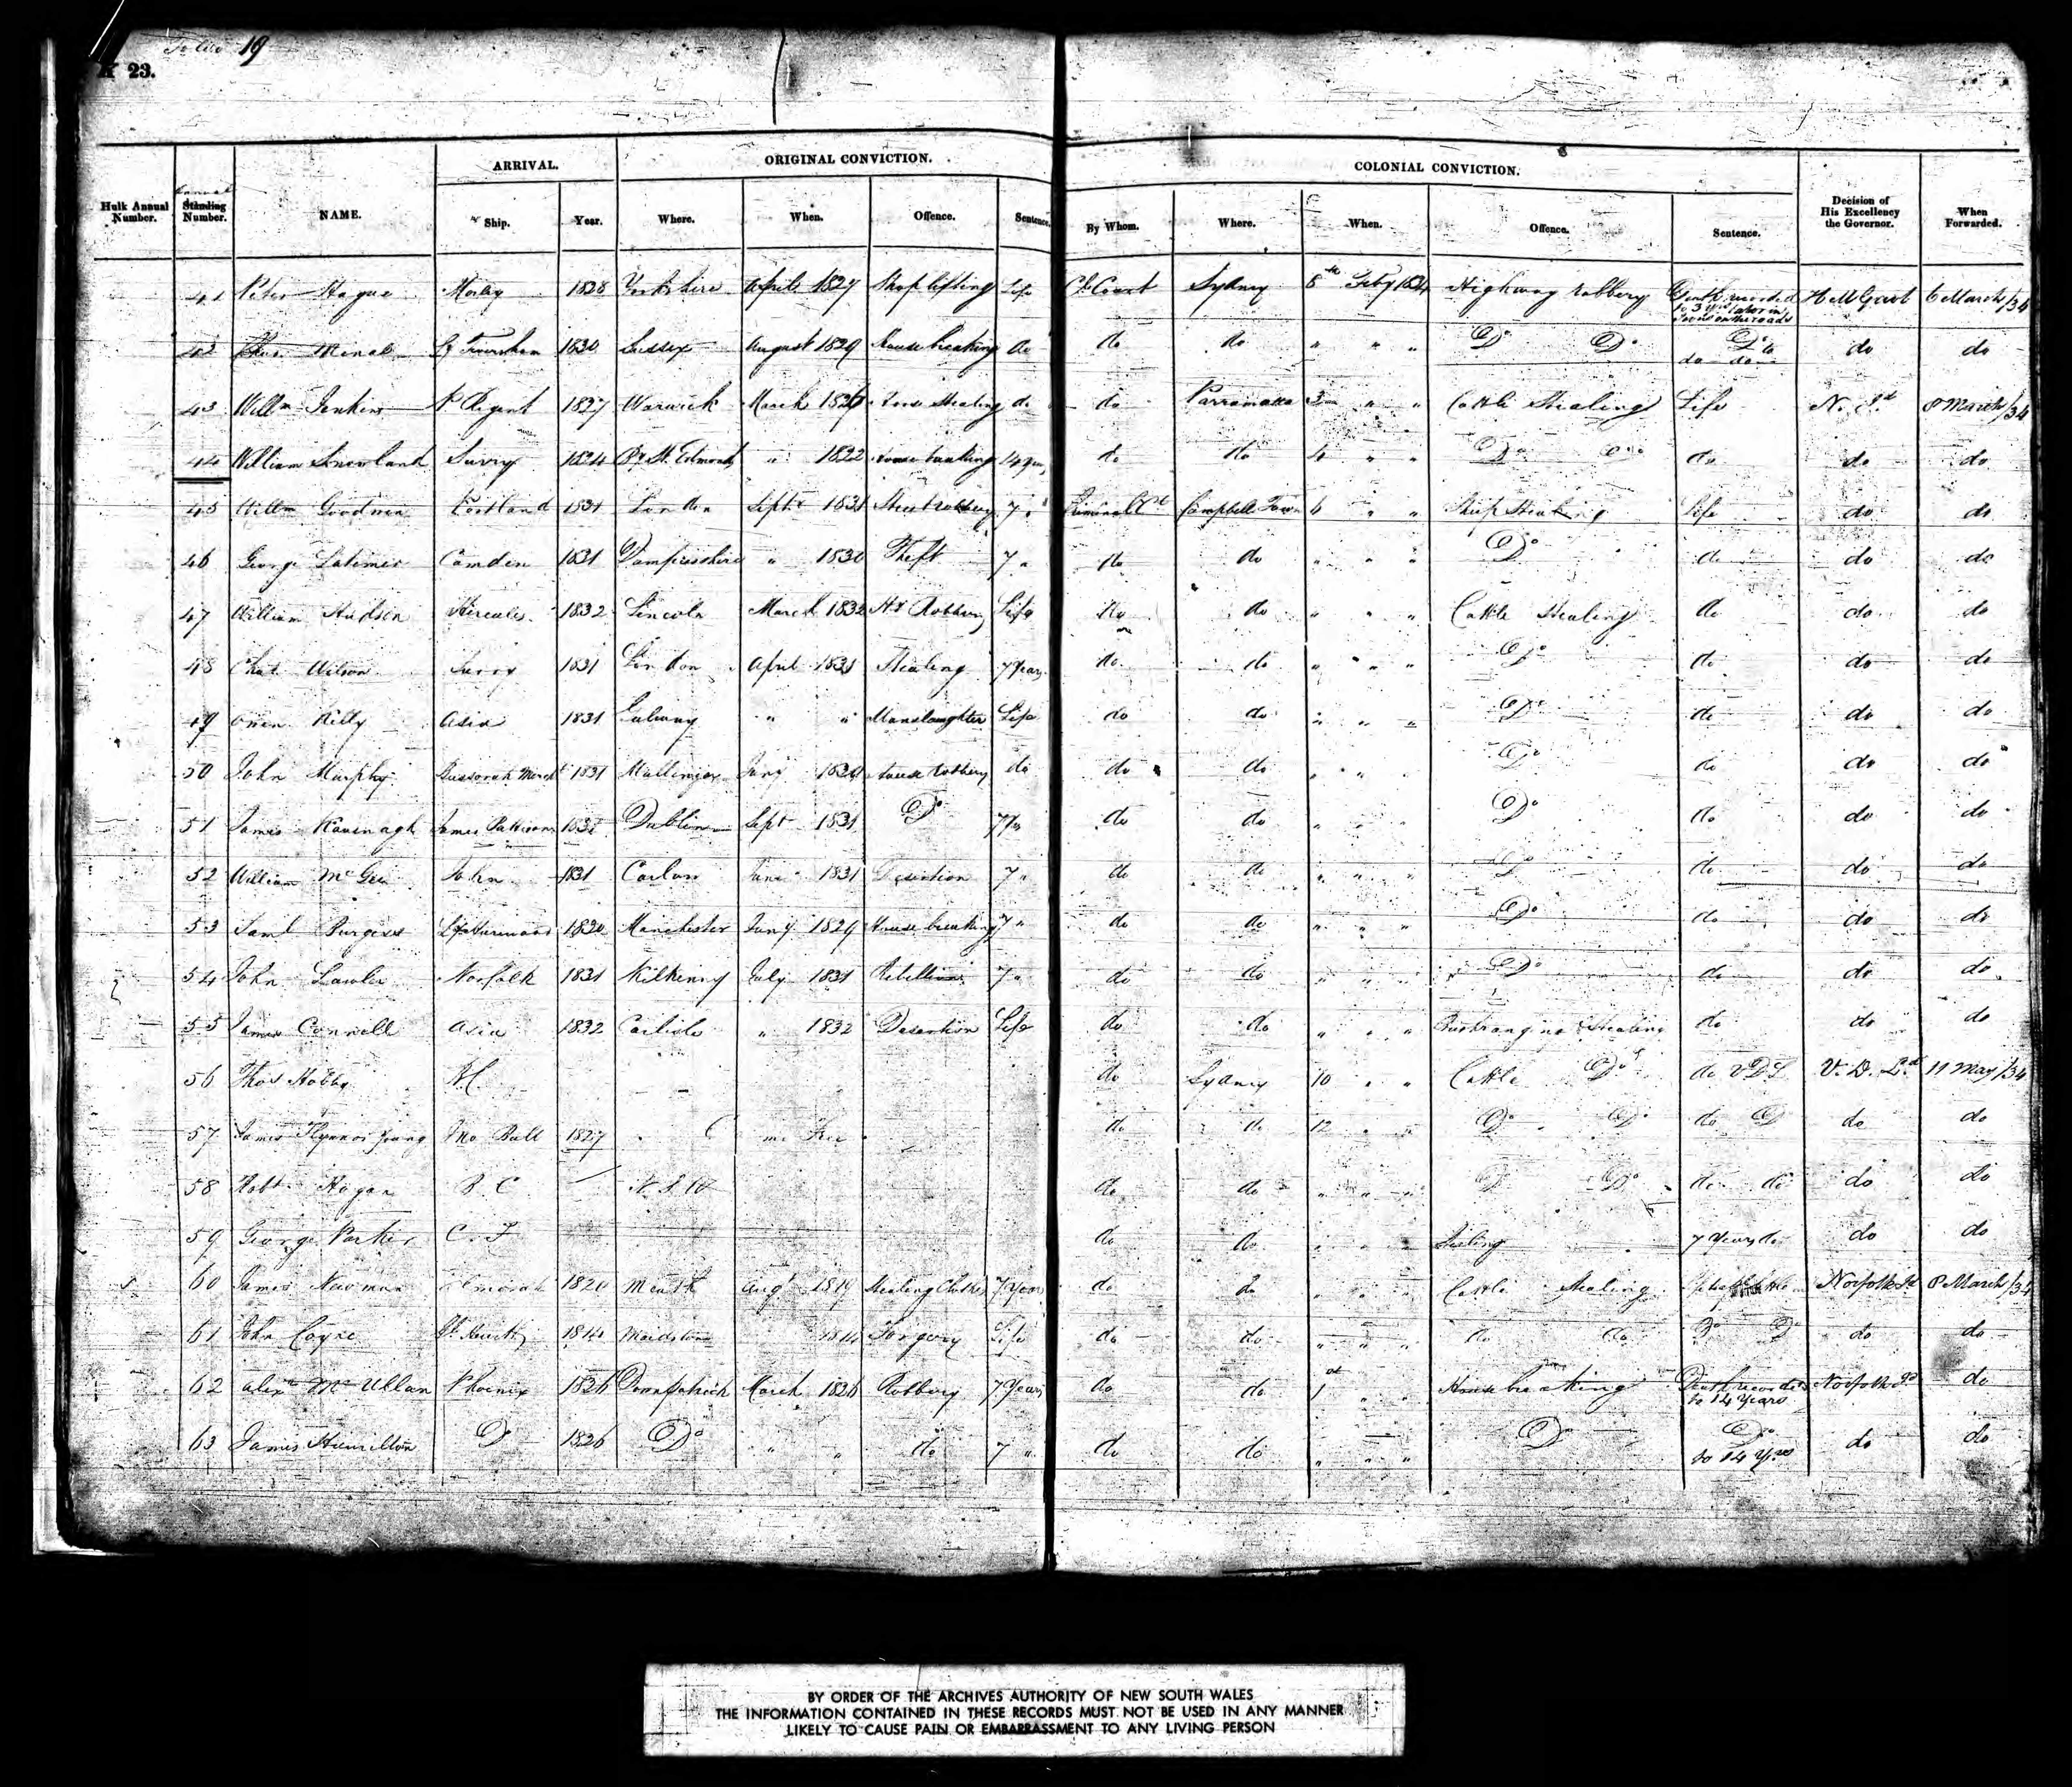 Folio 19
K 23.
ARRIVAL. ORIGINAL CONVICTION. COLONIAL CONVICTION.
Hulk Annual Number. Annual Standing Number. NAME. Ship. Year. Where. When. Offence. Sentence. By Whom. Where. When. Offence. Sentence. Decision of His Excellency the Governor. When Forwarded.
41 Peter Hague Morley 1828 Yorkshire April 1827 Shop lifting Life Cl. Court Sydney 8th Feby 1834 Highway robbery Death recorded to 3 yrs labor in irons on the roads 6 March/34
42 1830 Sussex August 1829 House breaking do do do " " " Do Do Do to do do do do
43 Willm Jenkins P. Regent 1827 Warwick March 1826 Stealing do do Parramatta 3 " " Cattle Stealing Life N. Id 8 March/34
44 William Surry 1824 By St. Edmonds " 1822 house breaking 14 yrs do do 4 " " Do Do do do do
45 Willm Goodman Portland 1831 London Septr 1831 Street robbery 7 " Criminal Ct Campbell Town 6 " " Sheep Stealing Life do do
46 George Latimer Camden 1831 " 1830 Theft 7 " do do " " " Do do do do
47 William Hudson Hercules 1832 Lincoln March 1832 Hy Robbery Life do do " " " Cattle Stealing do do do
48 Chas Wilson Surry 1831 London April 1831 Stealing 7 Years do do " " " Do do do do
49 Owen Kelly Asia 1831 Galway " " Manslaughter Life do do " " " Do do do do
50 John Murphy Bussorah Mercht 1831 Mullingar Jany house robbery do do do " " Do do do do
51 James Kavenagh James Pattison Dublin Sept 1831 Do 7 " do do " " Do do do do
52 William McGee John 1831 Carlow June 1831 Desertion 7 " do do " " " Do do do do
53 Saml Burgess 1830 Manchester Jany 1829 House breaking 7 " do do " " " Do do do do
54 John Lawler Norfolk 1831 Kilkenny July 1831 Rebellion 7 " do do " " " Do do do do
55 James Connell Asia 1832 Carlisle " 1832 Desertion Life do do " " " Bushranging & Stealing do do do
56 Thos Hobby do Sydney 10 " " Cattle Do do VDL V. D. Ld 11 May/34
57 James Young Jno Bull 1827 Came Free do do 12 " " Do Do do Do do do
58 Robt Hogan B. C N. S. W do do " " " Do Do do do do do
59 George Parker C. F do do " " Stealing 7 Years do do do
60 James Newman 1820 Meath Augt 1819 Stealing Clothes 7 Years do do " " Cattle Stealing Norfolk Id 8 March/34
61 John Coyne 1814 Maidstone 1814 Forgery Life do do " " " do do Do Do do do
62 Alexr McUllan Phoenix 1826 Downpatrick March 1826 Robbery 7 Years do do 1st " " House breaking Death recorded to 14 Years Norfolk Id do
63 James Hamilton Do 1826 Do " " do 7 " do do " " " Do Do to 14 Yrs do do
BY ORDER OF THE ARCHIVES AUTHORITY OF NEW SOUTH WALES
THE INFORMATION CONTAINED IN THESE RECORDS MUST NOT BE USED IN ANY MANNER
LIKELY TO CAUSE PAIN OR EMBARRASSMENT TO ANY LIVING PERSON